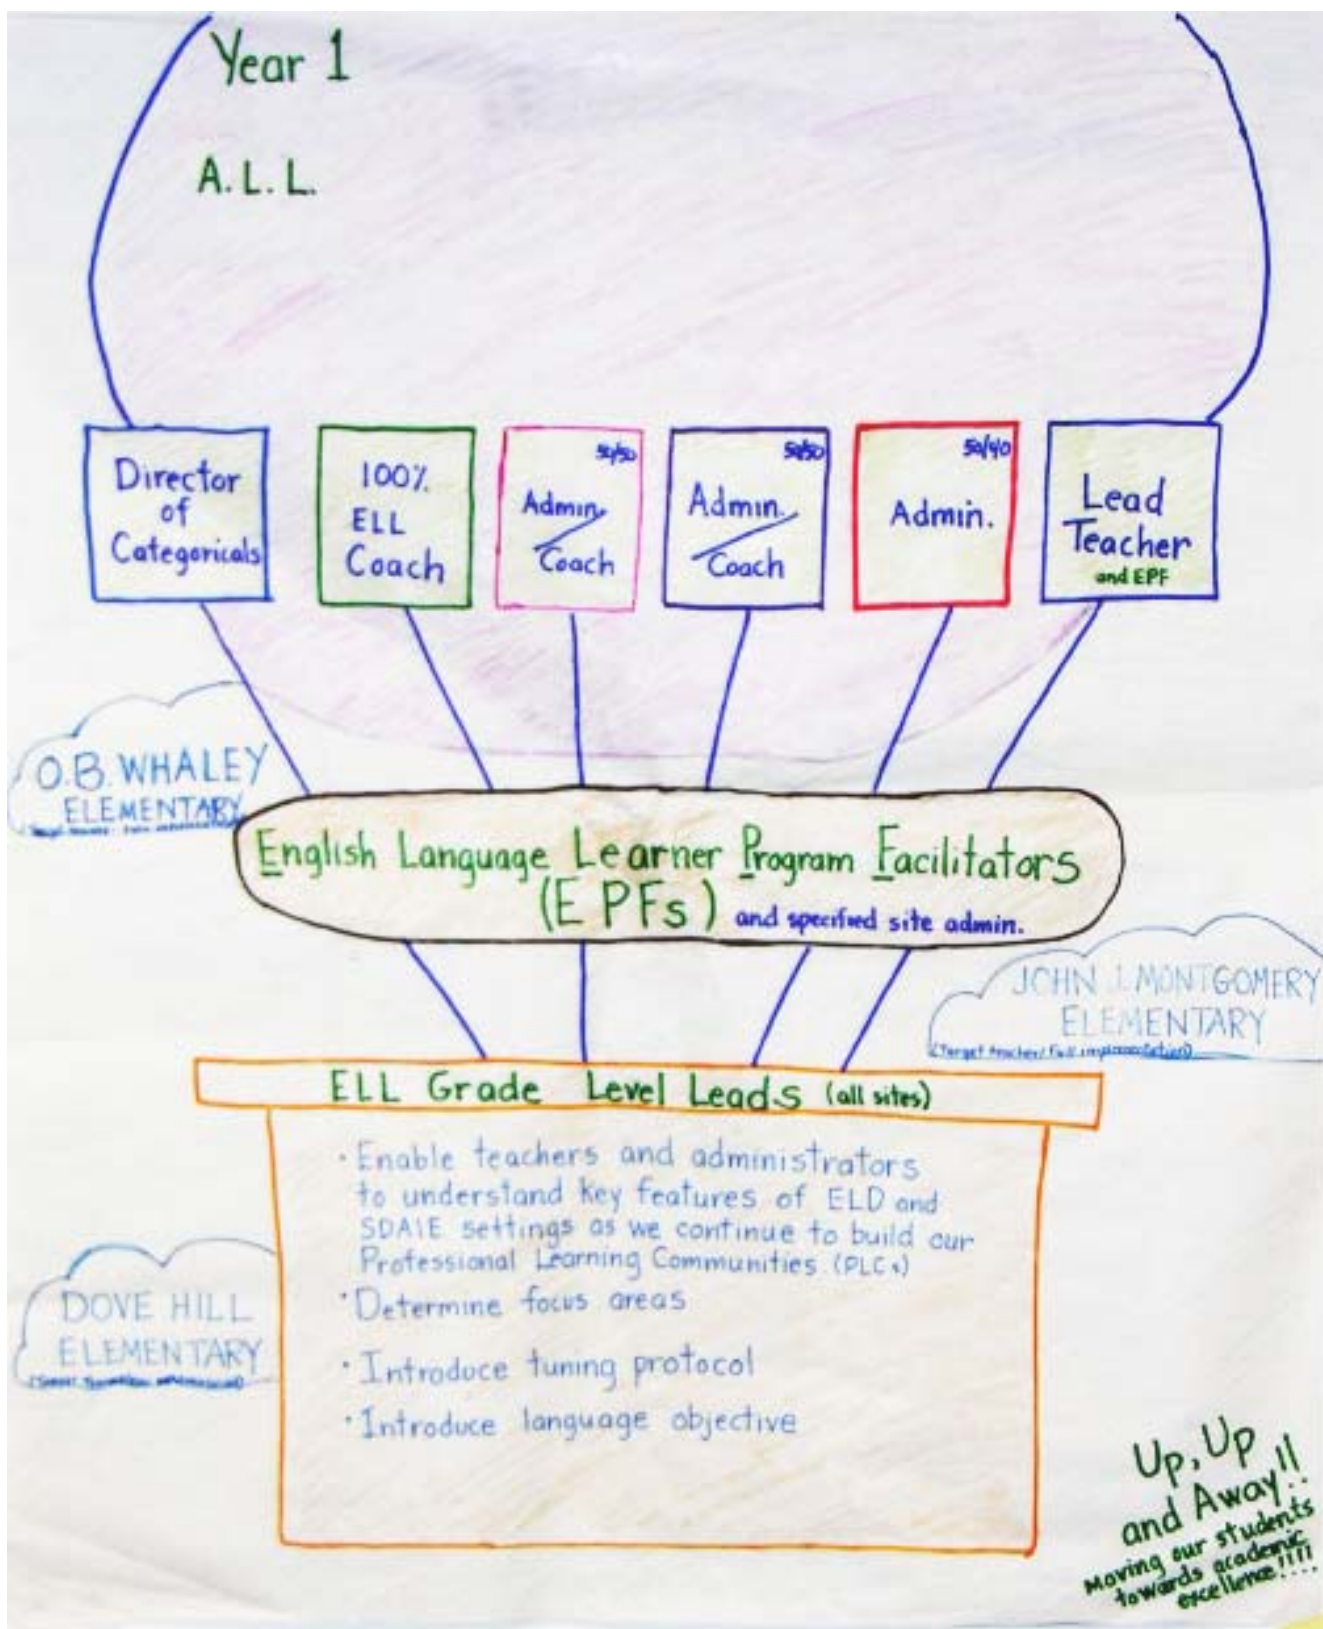 Year 1
A. L. L.
Director
of
Categoricals
100%
ELL
Coach
50/50
Admin.
Coach
50/50
Admin.
Coach
50/40
Admin.
Lead
Teacher
and EPF
O.B. WHALEY
ELEMENTARY
English Language Learner Program Facilitators
(EPFs) and specified site admin.
JOHN J. MONTGOMERY
ELEMENTARY
(Target teacher/Full implementation)
ELL Grade Level Leads (all sites)
· Enable teachers and administrators
to understand key features of ELD and
SDAIE settings as we continue to build our
Professional Learning Communities (PLCs)
· Determine focus areas
· Introduce tuning protocol
· Introduce language objective
DOVE HILL
ELEMENTARY
Up, Up
and Away!!
Moving our students
towards academic
excellence!!!!